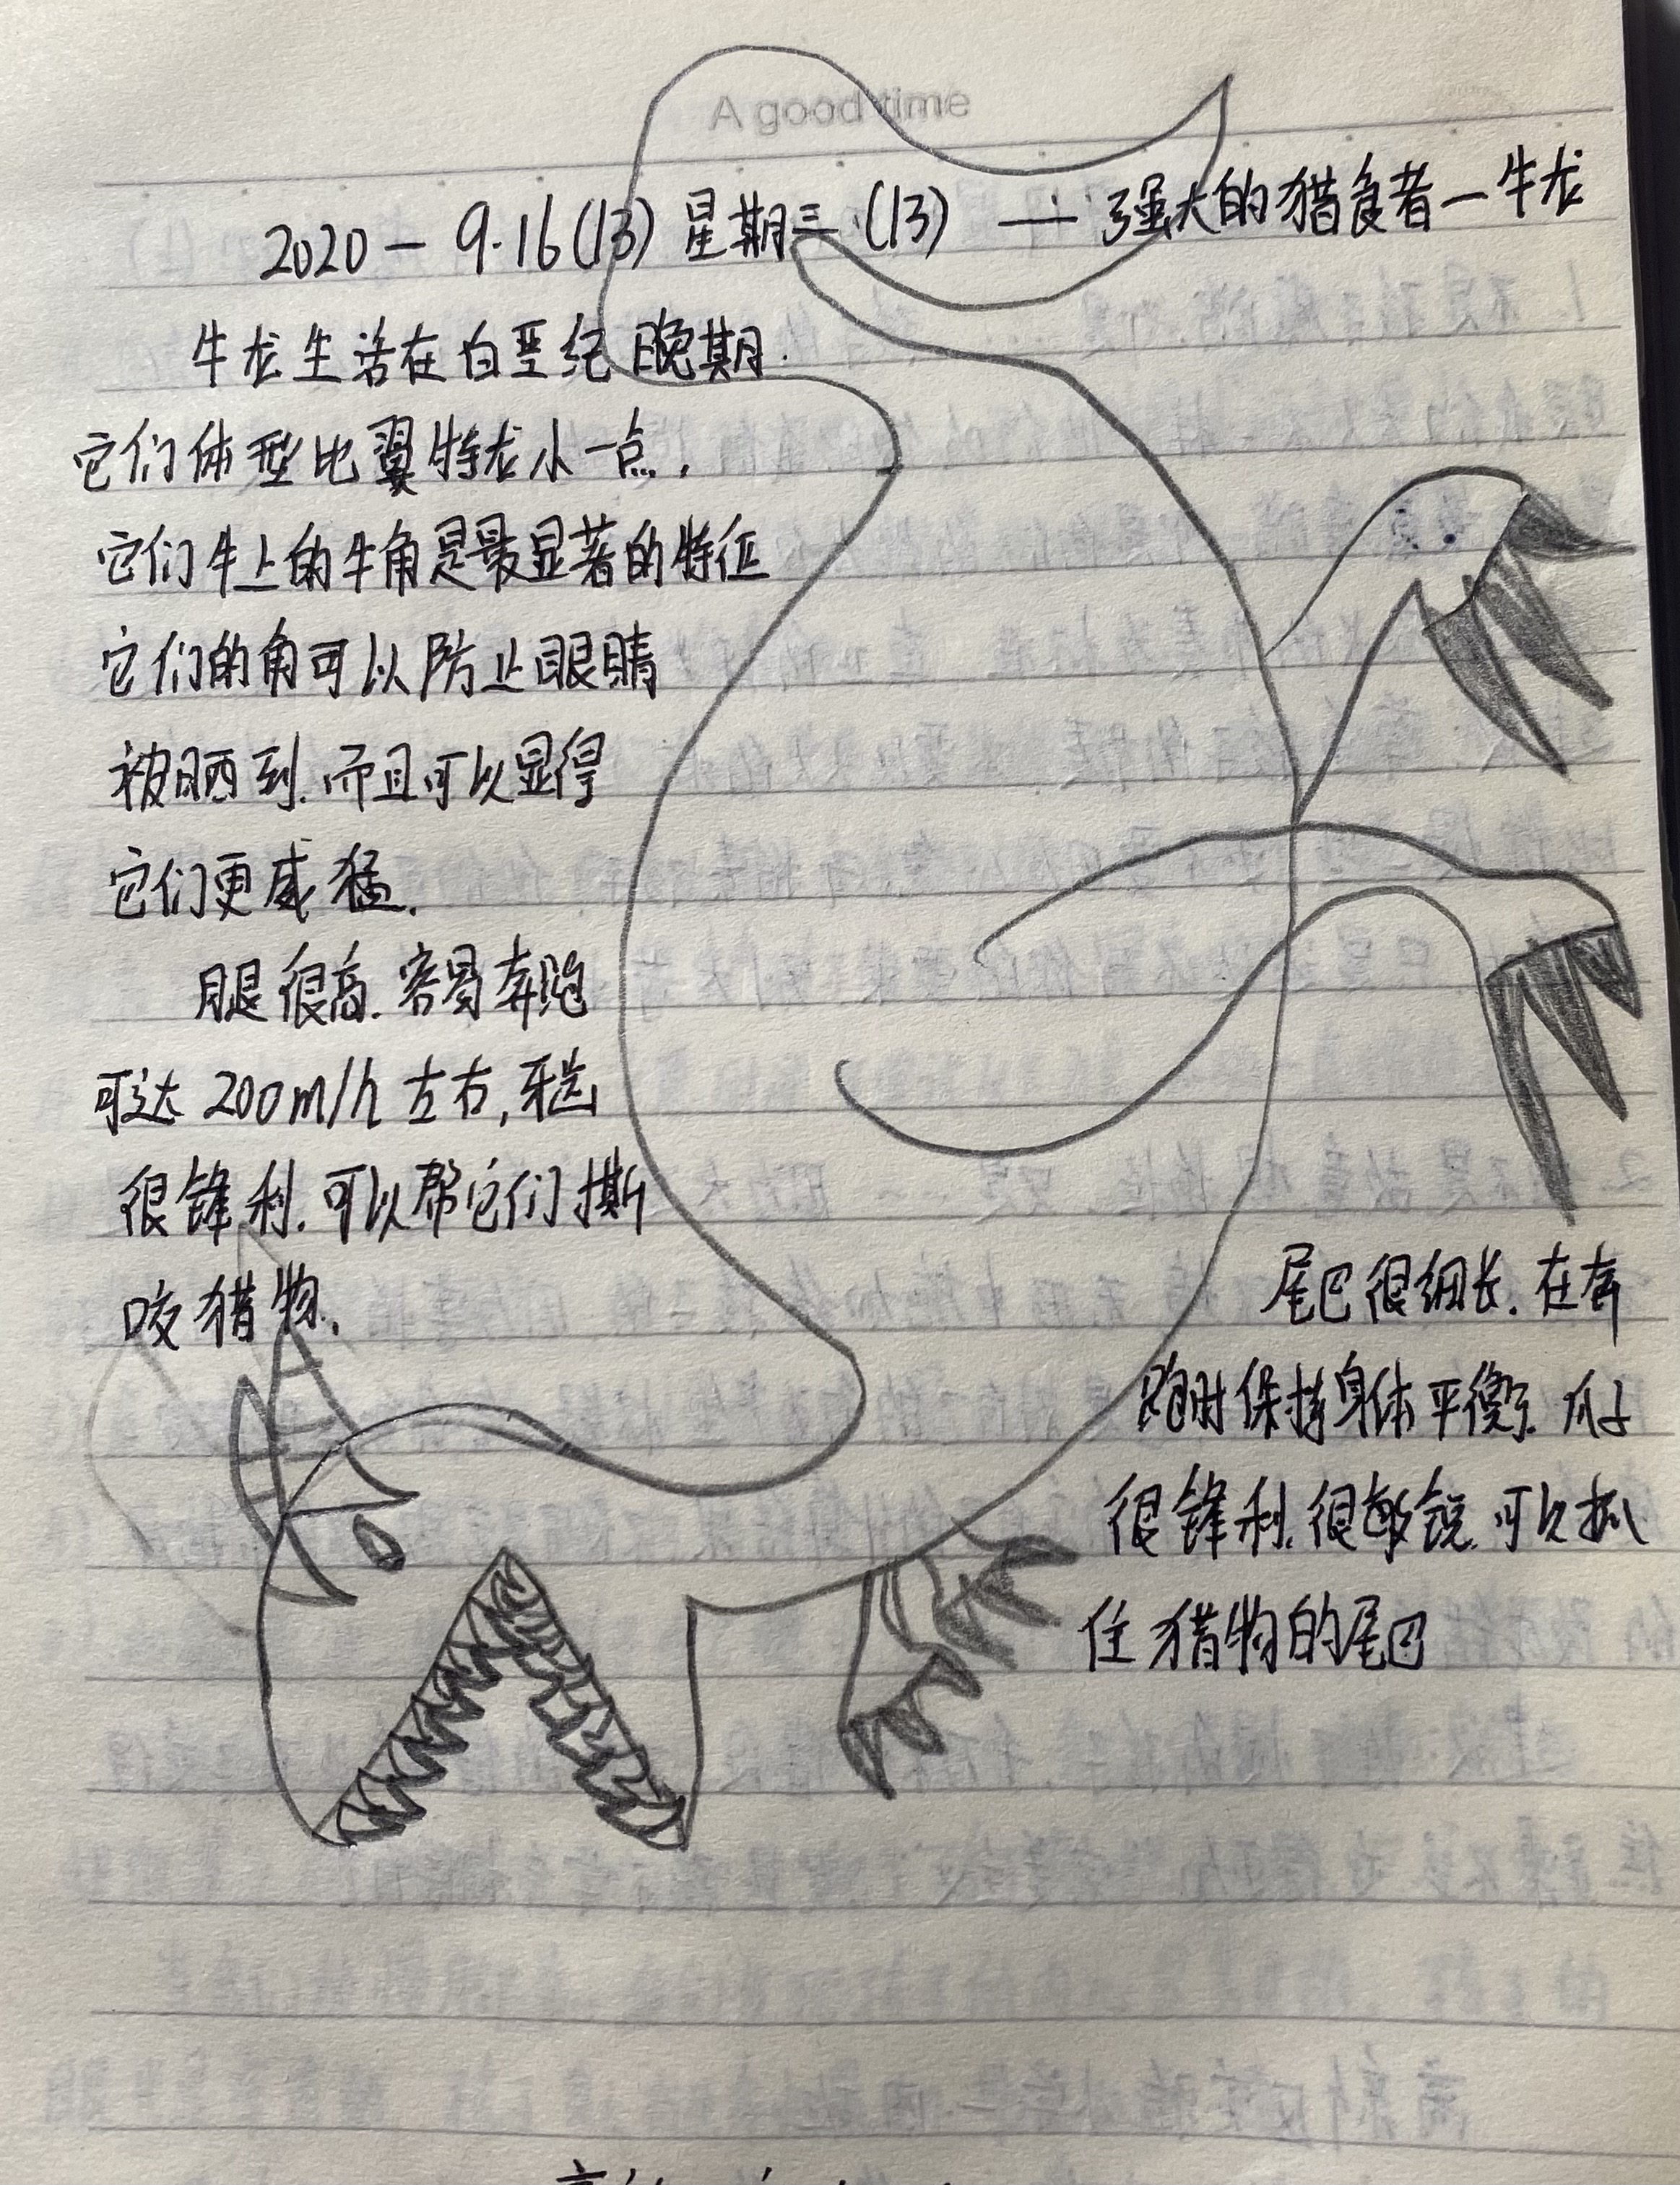 A good time
2020 - 9.16(13) 星期三 (13) — 强大的猎食者—牛龙
牛龙生活在白垩纪晚期.
它们体型比翼特龙小一点.
它们牛上的牛角是最显著的特征
它们的角可以防止眼睛
被晒到.而且可以显得
它们更威猛.
腿很高.容易奔跑
可达 200m/h 左右,牙齿
很锋利.可以帮它们撕
咬猎物.
尾巴很细长.在奔
跑时保持身体平衡. 爪子
很锋利.很敏锐.可以抓
住猎物的尾巴